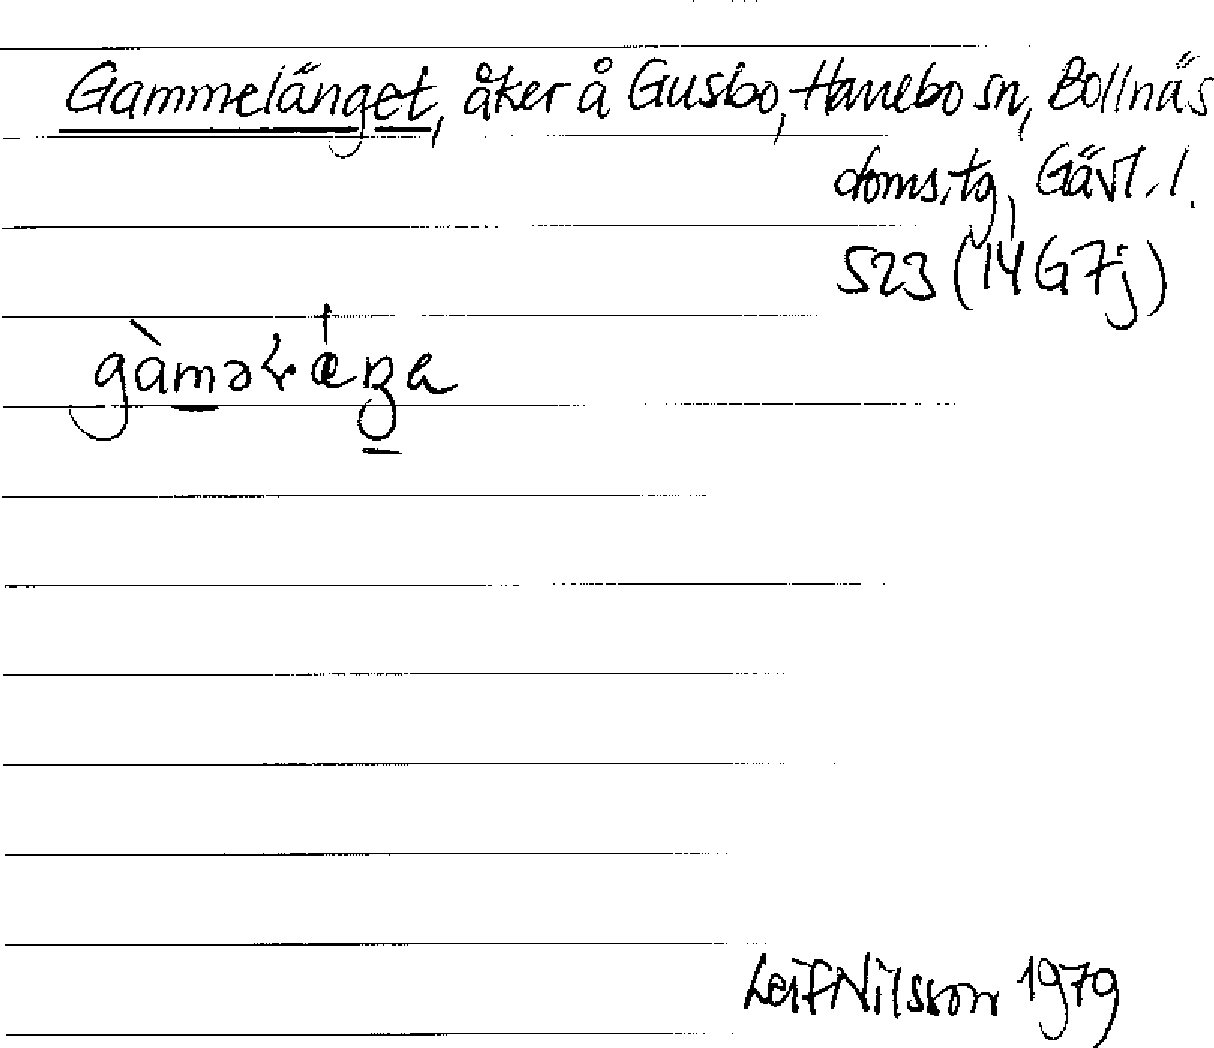 Gammelänget, åker å Gusbo, Hanebo sn, Bollnäs
doms.tg, Gävl.l.
523 (14G7j)
Leif Nilsson 1979